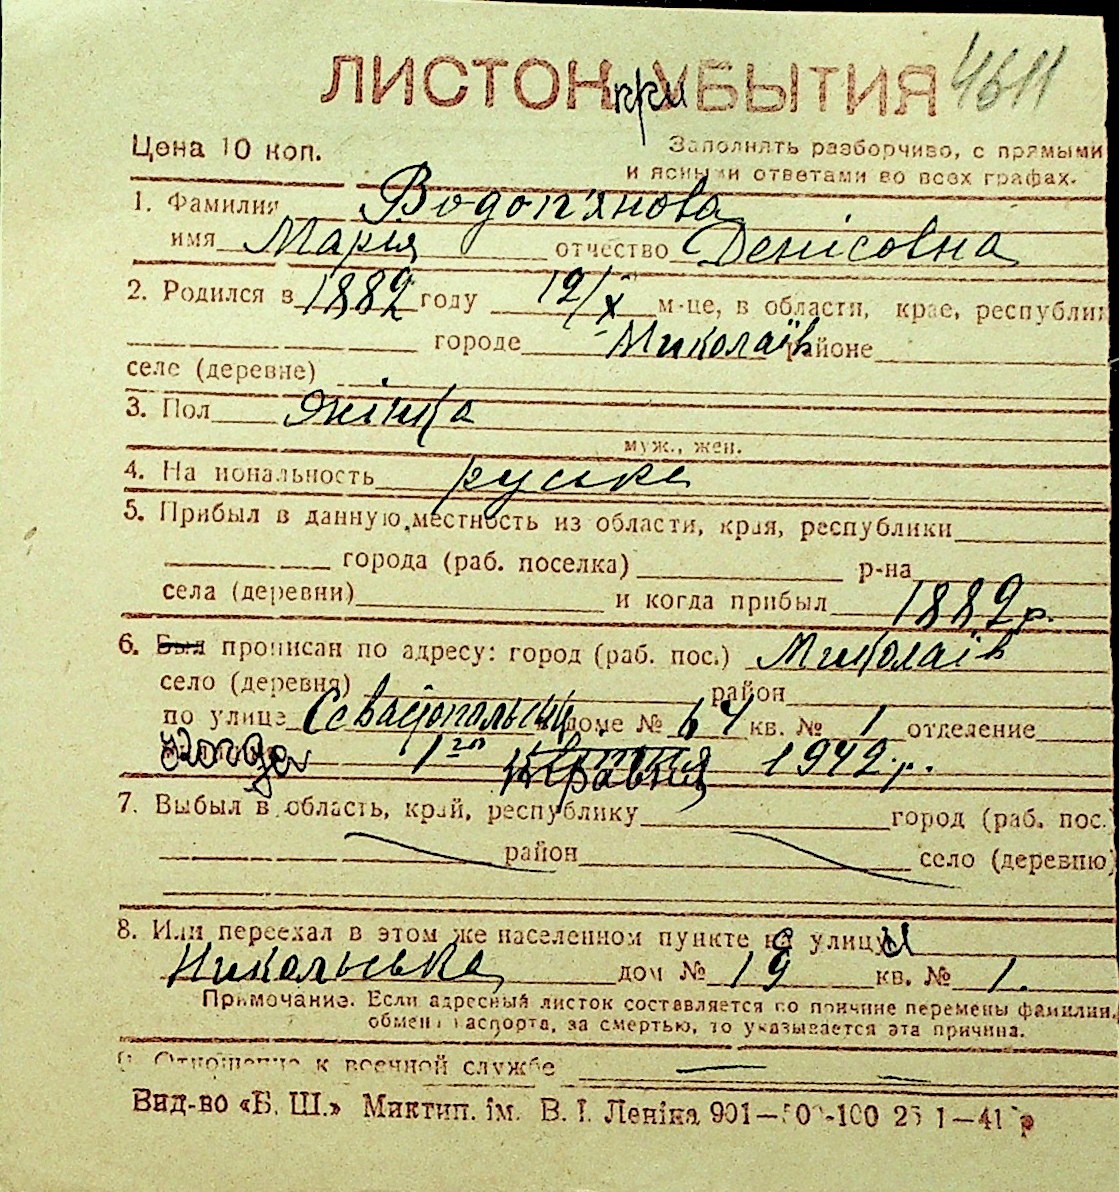 ЛИСТОК при УБЫТИЯ 4611
Цена 10 коп.
Заполнять разборчиво, с прямыми
и ясными ответами во всех графах.
1. Фамилия Водоп'янова
имя Марія отчество Денісовна
2. Родился в 1882 году 12/X м-це, в области, крае, республик
городе Миколаїв районе
селе (деревне)
3. Пол жінка
муж., жен.
4. Национальность руська
5. Прибыл в данную местность из области, края, республики
города (раб. поселка) р-на
села (деревни) и когда прибыл 1882 р.
6. Был прописан по адресу: город (раб. пос.) Миколаїв
село (деревня) район
по улице Севастопольскій доме № 64 кв. № 1 отделение
1го травня 1942 р.
7. Выбыл в область, край, республику город (раб. пос.)
район село (деревню)
8. Или переехал в этом же населенном пункте на улицу
Никольська дом № 19 кв. № 1.
Примечание. Если адресный листок составляется по причине перемены фамилии,
обмена паспорта, за смертью, то указывается эта причина.
9. Отношение к военной службе
Вид-во «Б. Ш.» Миктип. ім. В. І. Леніна 901—500-100 25 1—41 р